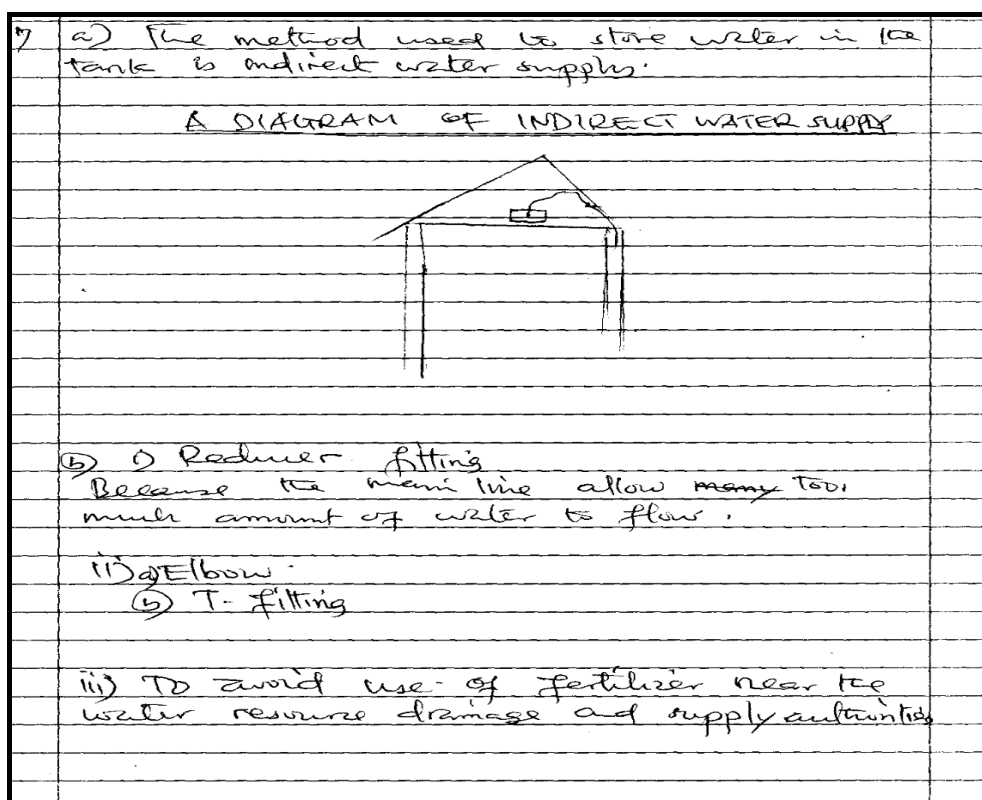 7 a) The method used to store water in the
tank is indirect water supply.
A DIAGRAM OF INDIRECT WATER SUPPLY
(b) i) Reducer fitting
Because the main line allow many Too
much amount of water to flow.
ii) a) Elbow.
(b) T-fitting
iii) TO avoid use of fertilizer near the
water resource drainage and supply authorities